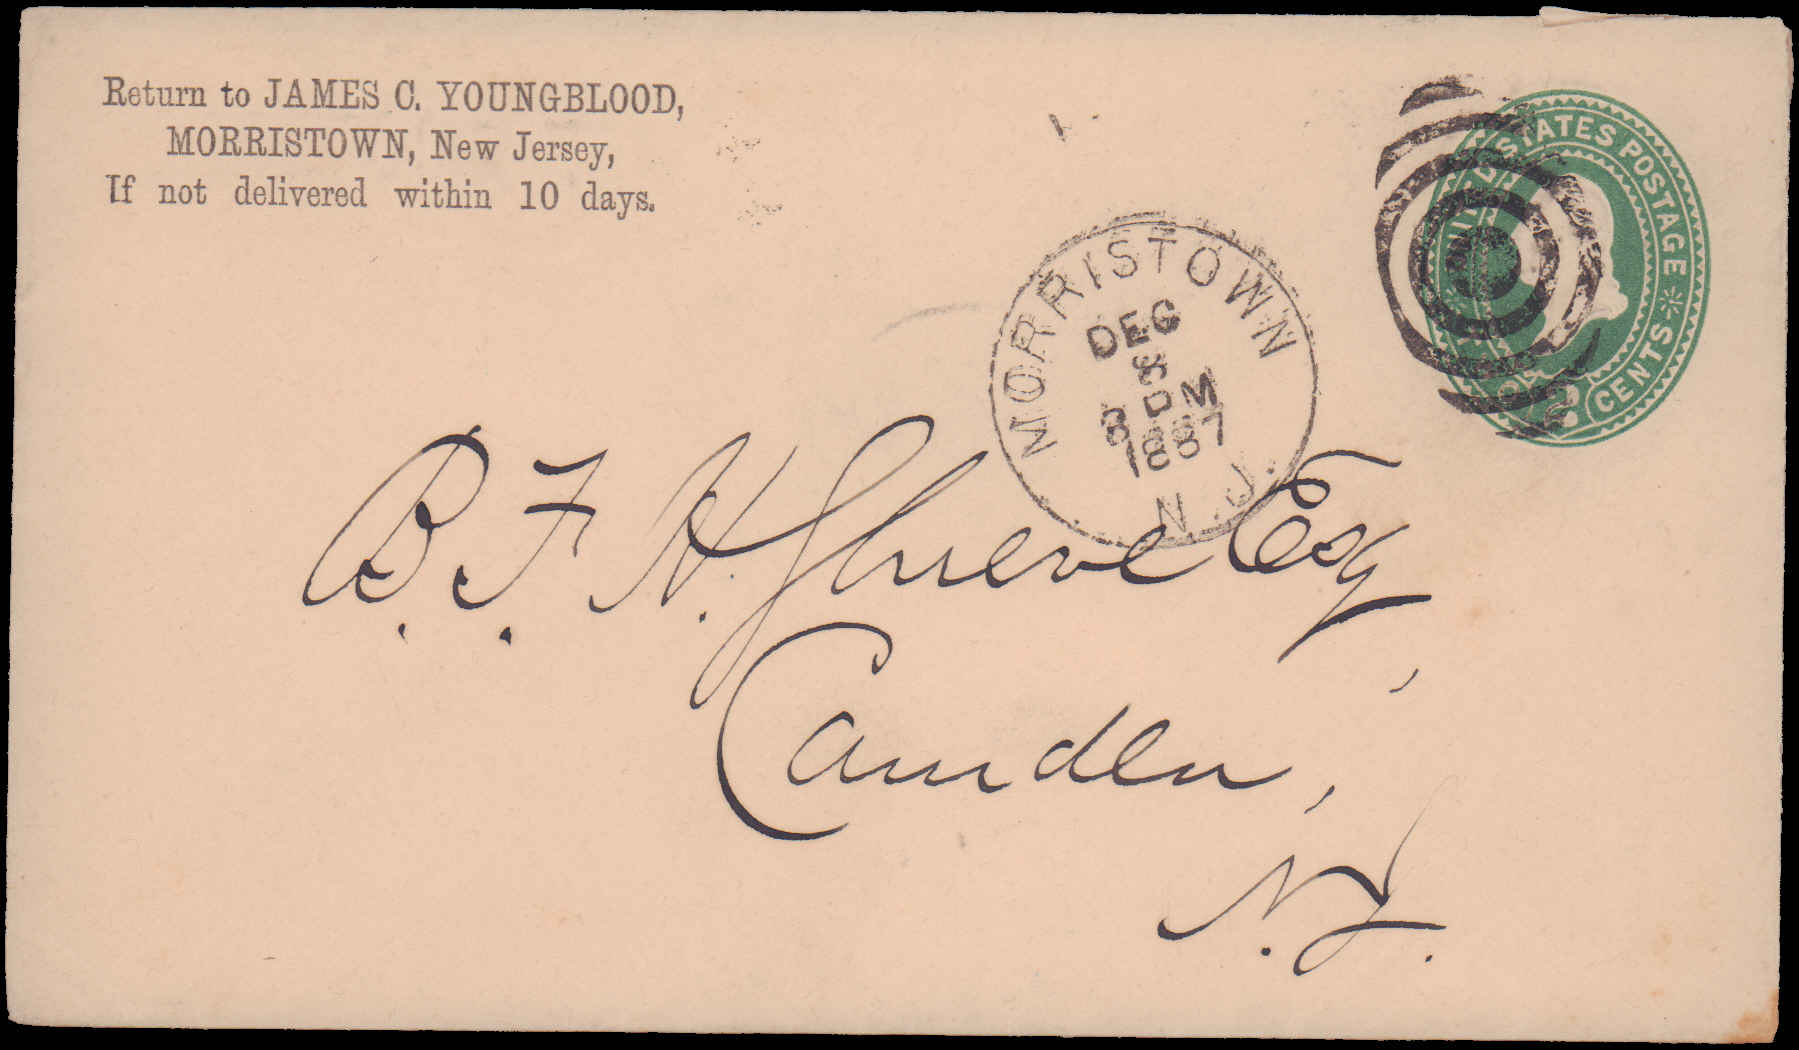 Return to JAMES C. YOUNGBLOOD,
MORRISTOWN, New Jersey,
If not delivered within 10 days.
STATES POSTAGE
2 CENTS
MORRISTOWN
DEC
8
PM
1887
N.J.
B. F. H. Shreve Esq,
Camden,
N.J.